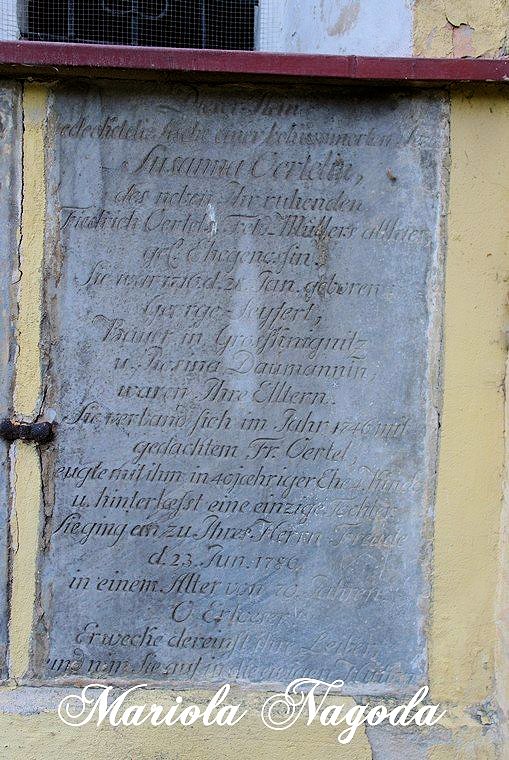 Dieser Stein
bedeckt die Asche einer
Susanna Oertelin,
des neben Ihr ruhenden
Friedrich Oertels, Müllers
gel. Ehegenossin.
Sie war 1716 d. 28. Jan. geboren
George Seyfert,
Bauer in
u. Rosina Daumannin,
waren Ihre Elltern.
Sie verband sich im Jahr 1746 mit
gedachtem Fr. Oertel,
zeugte mit ihm, in 40jæhriger Ehe
u. hinterlæsst eine einzige Tochter
Sie ging ein zu Ihres Herrn Freude
d. 23. Jun. 1786
in einem Alter von 70. Jahren.
O Erloeser
Erwecke dereinst ihre Leiber
und nim Sie auf in die
Mariola Nagoda